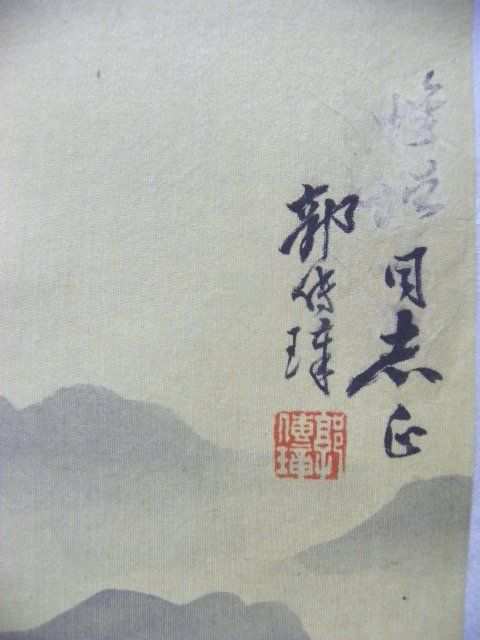 同志正
郭传璋
郭傳璋